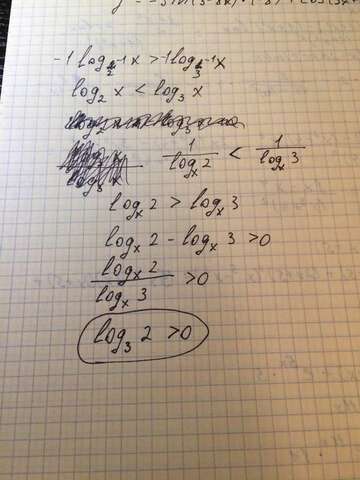 -1 log₂-1 x > -1 log₃-1 x
log₂ x < log₃ x
1/logₓ 2 < 1/logₓ 3
logₓ 2 > logₓ 3
logₓ 2 - logₓ 3 > 0
logₓ 2 / logₓ 3 > 0
log₃ 2 > 0